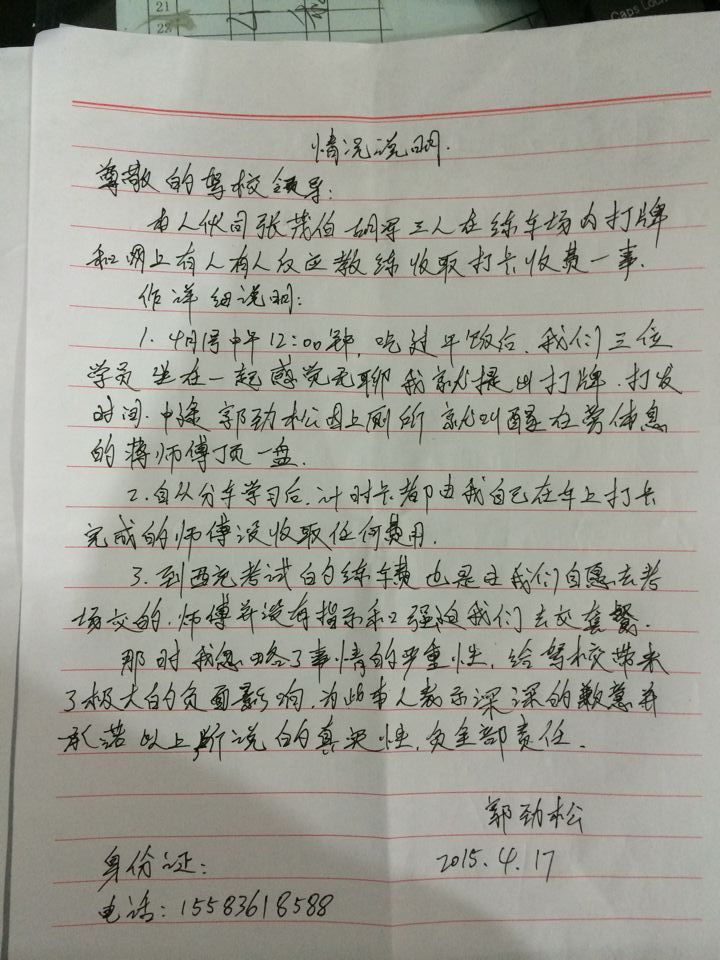 21
22
Caps Lock
情况说明.
尊敬的驾校领导:
本人伙同张茂伯胡军三人在练车场内打牌
和网上有人有人反应教练收取打卡收费一事.
作详细说明:
1. 4月1号中午12:00钟,吃过午饭后.我们三位
学员坐在一起感觉无聊我就提出打牌.打发
时间.中途郭劲松因上厕所就叫醒在旁休息
的蒋师傅顶一盘.
2.自从分车学习后.计时卡都由我自己在车上打卡
完成的师傅没收取任何费用.
3.到西充考试的练车费也是由我们自愿去考
场交的.师傅并没有指示和强迫我们去交套餐.
那时我忽略了事情的严重性.给驾校带来
了极大的负面影响.为此本人表示深深的歉意并
承诺以上所说的真实性.负全部责任.
郭劲松
身份证: 2015.4.17
电话:15583618588